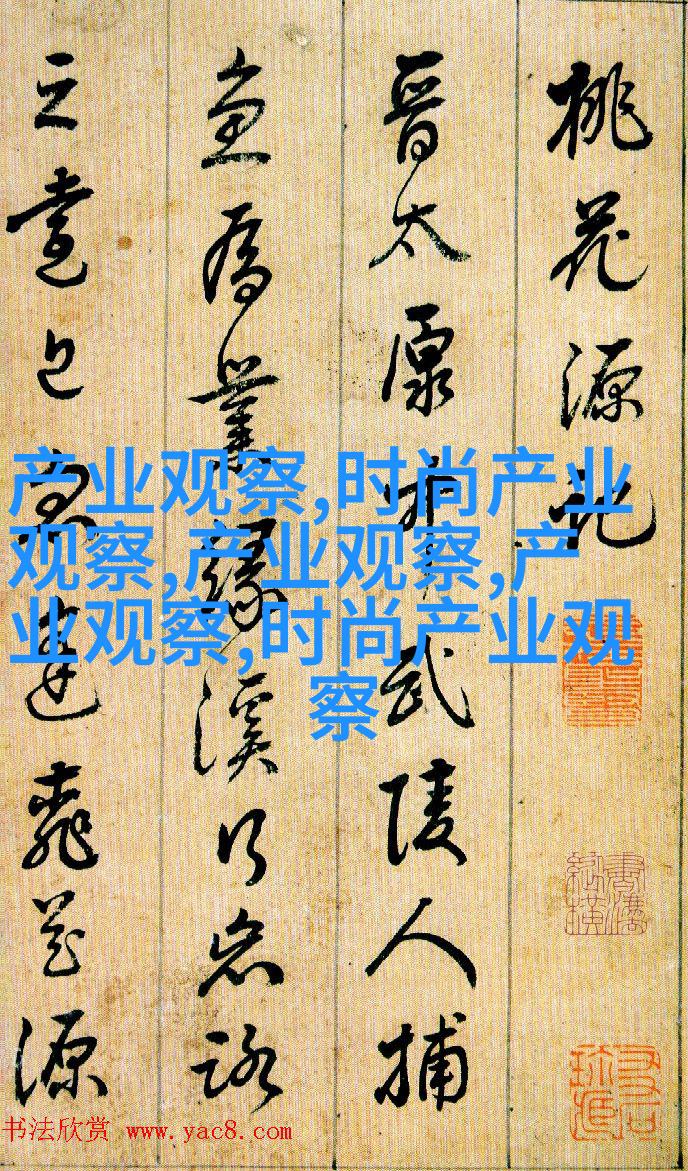 桃花源記
晉太原中武陵人捕
魚爲業緣溪行忘路
之 花源
产业观察,时尚产业
观察,产业观察,产
业观察,时尚产业观
察
书法欣赏 www.yac8.com